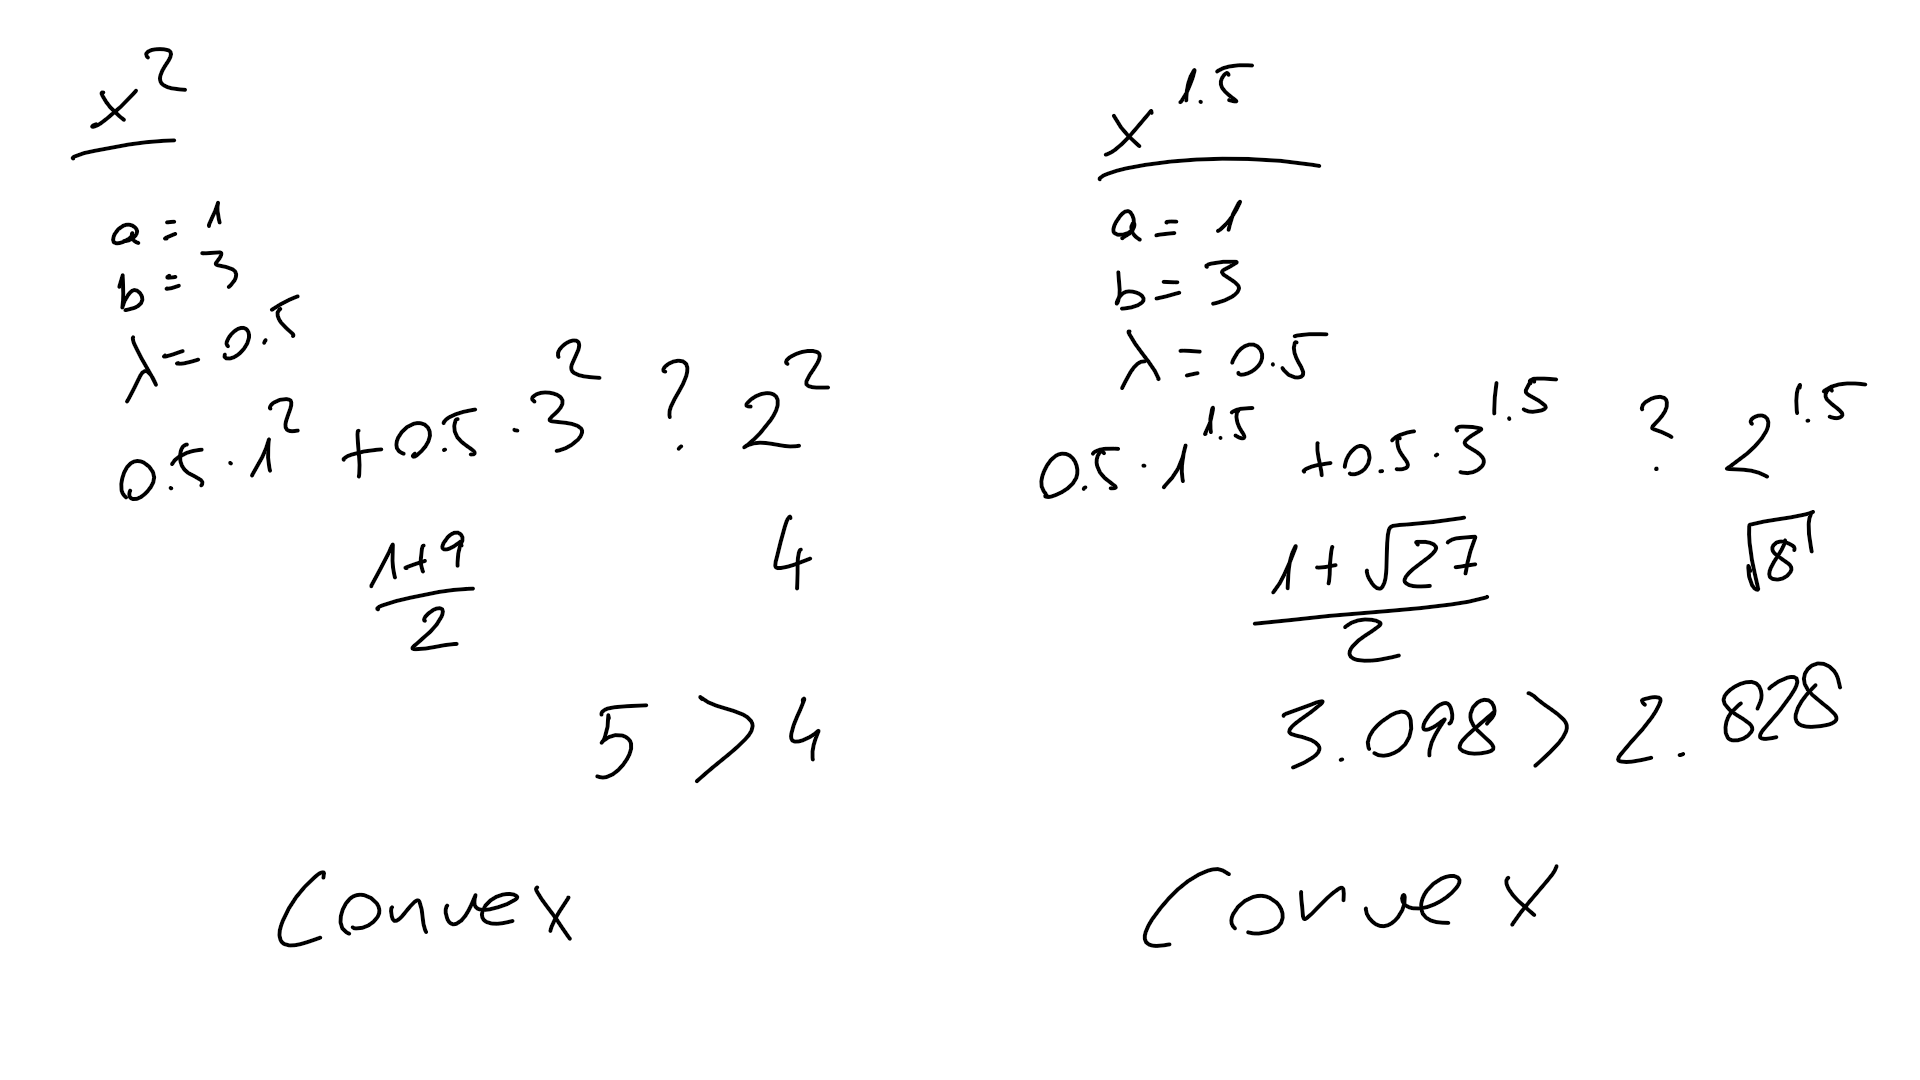 x²
a = 1
b = 3
λ = 0.5
0.5 · 1² + 0.5 · 3² ? 2²
(1+9)/2 4
5 > 4
Convex
x^1.5
a = 1
b = 3
λ = 0.5
0.5 · 1^1.5 + 0.5 · 3^1.5 ? 2^1.5
(1+√27)/2 √8
3.098 > 2.828
Convex